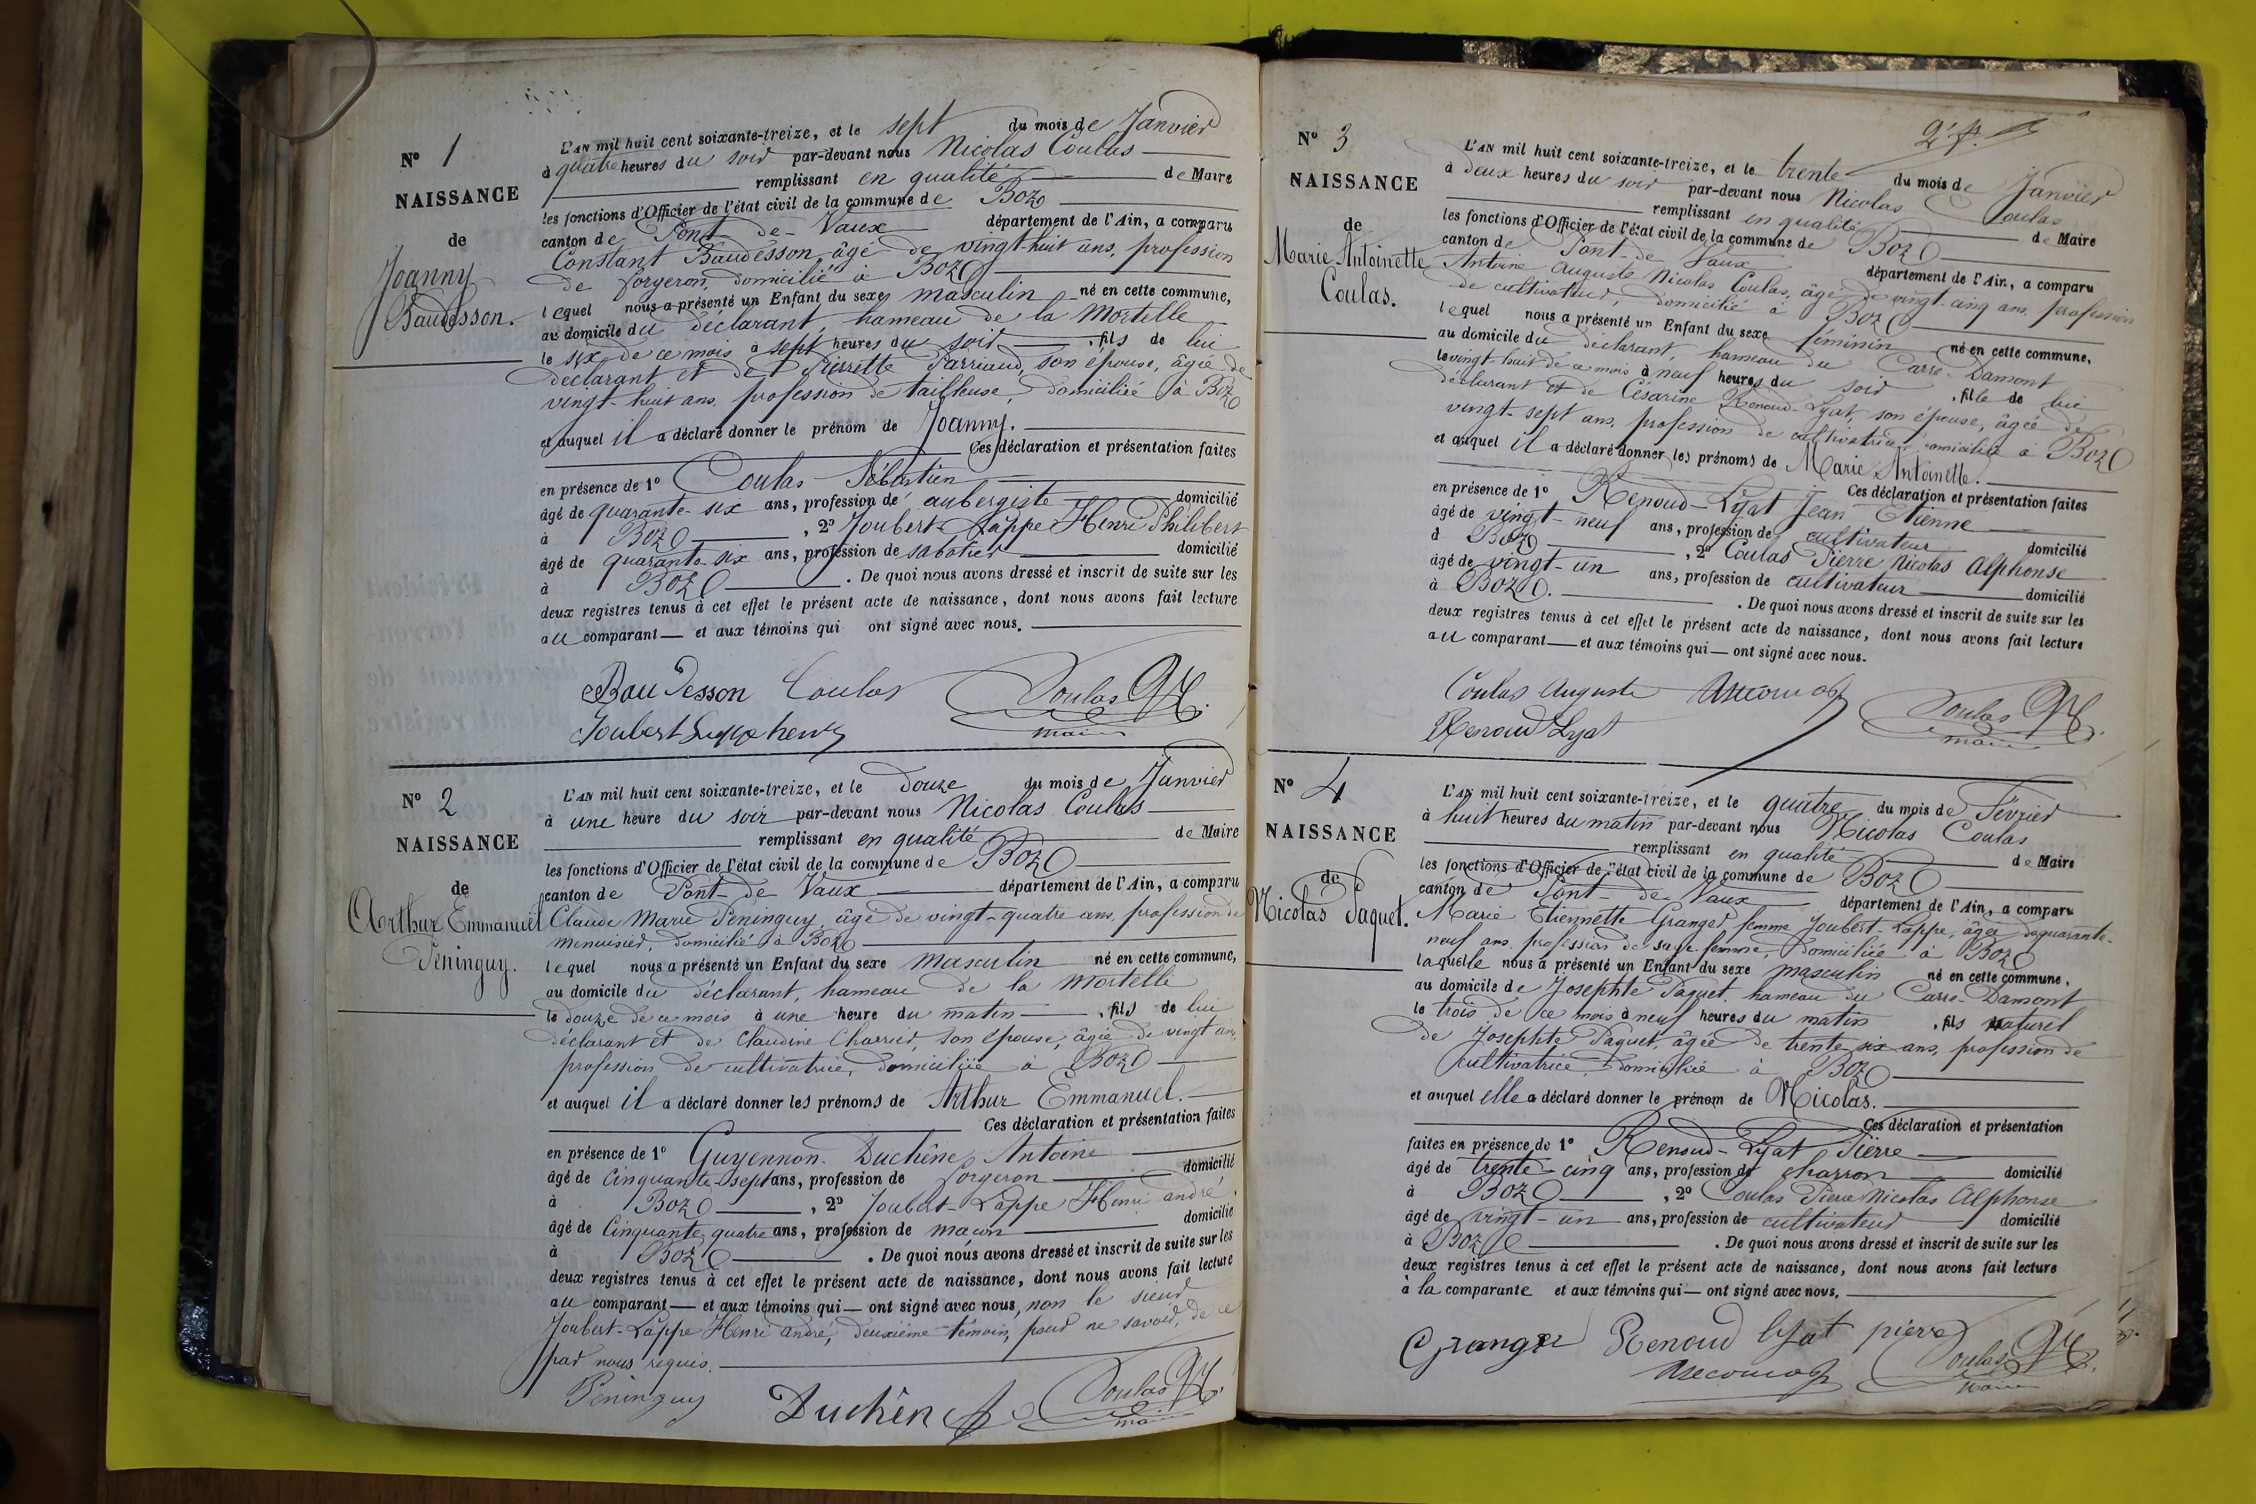 N° 1
NAISSANCE
de
Joanny
Baudesson.
L'AN mil huit cent soixante-treize, et le sept du mois de Janvier
à quatre heures du soir par-devant nous Nicolas Coulas
remplissant en qualité de Maire
les fonctions d'Officier de l'état civil de la commune de Boz
canton de Pont-de-Vaux département de l'Ain, a comparu
Constant Baudesson, âgé de vingt-huit ans, profession
de forgeron, domicilié à Boz
lequel nous a présenté un Enfant du sexe masculin né en cette commune,
au domicile du déclarant, hameau de la Mortelle
le six de ce mois à sept heures du soir, fils de lui
déclarant et de Pierrette Parriaud, son épouse, âgée de
vingt-huit ans, profession de tailleuse, domiciliée à Boz
et auquel il a déclaré donner le prénom de Joanny.
Ces déclaration et présentation faites
en présence de 1° Coulas Sébastien
âgé de quarante-six ans, profession de aubergiste domicilié
à Boz, 2° Joubert-Lappe Henri Philibert
âgé de quarante-six ans, profession de sabotier domicilié
à Boz. De quoi nous avons dressé et inscrit de suite sur les
deux registres tenus à cet effet le présent acte de naissance, dont nous avons fait lecture
au comparant et aux témoins qui ont signé avec nous.
Baudesson Coulas Coulas N.
Joubert Lappe henry maire
N° 2
NAISSANCE
de
Arthur Emmanuel
Peninguy.
L'AN mil huit cent soixante-treize, et le douze du mois de Janvier
à une heure du soir par-devant nous Nicolas Coulas
remplissant en qualité de Maire
les fonctions d'Officier de l'état civil de la commune de Boz
canton de Pont-de-Vaux département de l'Ain, a comparu
Claude Marie Peninguy, âgé de vingt-quatre ans, profession de
menuisier, domicilié à Boz
lequel nous a présenté un Enfant du sexe masculin né en cette commune,
au domicile du déclarant, hameau de la Mortelle
le douze de ce mois à une heure du matin, fils de lui
déclarant et de Claudine Charrier, son épouse, âgée de vingt ans,
profession de cultivatrice, domiciliée à Boz
et auquel il a déclaré donner les prénoms de Arthur Emmanuel.
Ces déclaration et présentation faites
en présence de 1° Guyennon-Duchêne, Antoine
âgé de cinquante-sept ans, profession de forgeron domicilié
à Boz, 2° Joubert-Lappe Henri andré,
âgé de Cinquante quatre ans, profession de maçon domicilié
à Boz. De quoi nous avons dressé et inscrit de suite sur les
deux registres tenus à cet effet le présent acte de naissance, dont nous avons fait lecture
au comparant et aux témoins qui ont signé avec nous, non le sieur
Joubert-Lappe Henri andré, deuxième témoin, pour ne savoir, de ce
par nous requis.
Peninguy Duchêne Coulas N.
maire
N° 3
NAISSANCE
de
Marie Antoinette
Coulas.
2e f.
L'AN mil huit cent soixante-treize, et le trente du mois de Janvier
à deux heures du soir par-devant nous Nicolas Coulas
remplissant en qualité de Maire
les fonctions d'Officier de l'état civil de la commune de Boz
canton de Pont-de-Vaux département de l'Ain, a comparu
Antoine Auguste Nicolas Coulas, âgé de vingt-cinq ans, profession
de cultivateur, domicilié à Boz
lequel nous a présenté un Enfant du sexe féminin né en cette commune,
au domicile du déclarant, hameau du Carre-Damont
le vingt-huit de ce mois à neuf heures du soir, fille de lui
déclarant et de Césarine Renoud-Lyat, son épouse, âgée de
vingt-sept ans, profession de cultivatrice, domiciliée à Boz
et auquel il a déclaré donner les prénoms de Marie Antoinette.
Ces déclaration et présentation faites
en présence de 1° Renoud-Lyat Jean Etienne
âgé de vingt-neuf ans, profession de cultivateur domicilié
à Boz, 2° Coulas Pierre Nicolas Alphonse
âgé de vingt-un ans, profession de cultivateur domicilié
à Boz. De quoi nous avons dressé et inscrit de suite sur les
deux registres tenus à cet effet le présent acte de naissance, dont nous avons fait lecture
au comparant et aux témoins qui ont signé avec nous.
Coulas Auguste Coulas N.
Renoud Lyat maire
N° 4
NAISSANCE
de
Nicolas Paquet.
L'AN mil huit cent soixante-treize, et le quatre du mois de Février
à huit heures du matin par-devant nous Nicolas Coulas
remplissant en qualité de Maire
les fonctions d'Officier de l'état civil de la commune de Boz
canton de Pont-de-Vaux département de l'Ain, a comparu
Marie Etiennette Granger femme Joubert-Lappe, âgée de quarante-
neuf ans, profession de sage-femme, domiciliée à Boz
laquelle nous a présenté un Enfant du sexe masculin né en cette commune,
au domicile de Josephte Paquet, hameau du Carre-Damont
le trois de ce mois à neuf heures du matin, fils naturel
de Josephte Paquet, âgée de trente-six ans, profession de
cultivatrice, domiciliée à Boz
et auquel elle a déclaré donner le prénom de Nicolas.
Ces déclaration et présentation
faites en présence de 1° Renoud-Lyat Pierre
âgé de trente-cinq ans, profession de charron domicilié
à Boz, 2° Coulas Pierre Nicolas Alphonse
âgé de vingt-un ans, profession de cultivateur domicilié
à Boz. De quoi nous avons dressé et inscrit de suite sur les
deux registres tenus à cet effet le présent acte de naissance, dont nous avons fait lecture
à la comparante et aux témoins qui ont signé avec nous.
Granger Renoud lyat pierre Coulas N.
maire